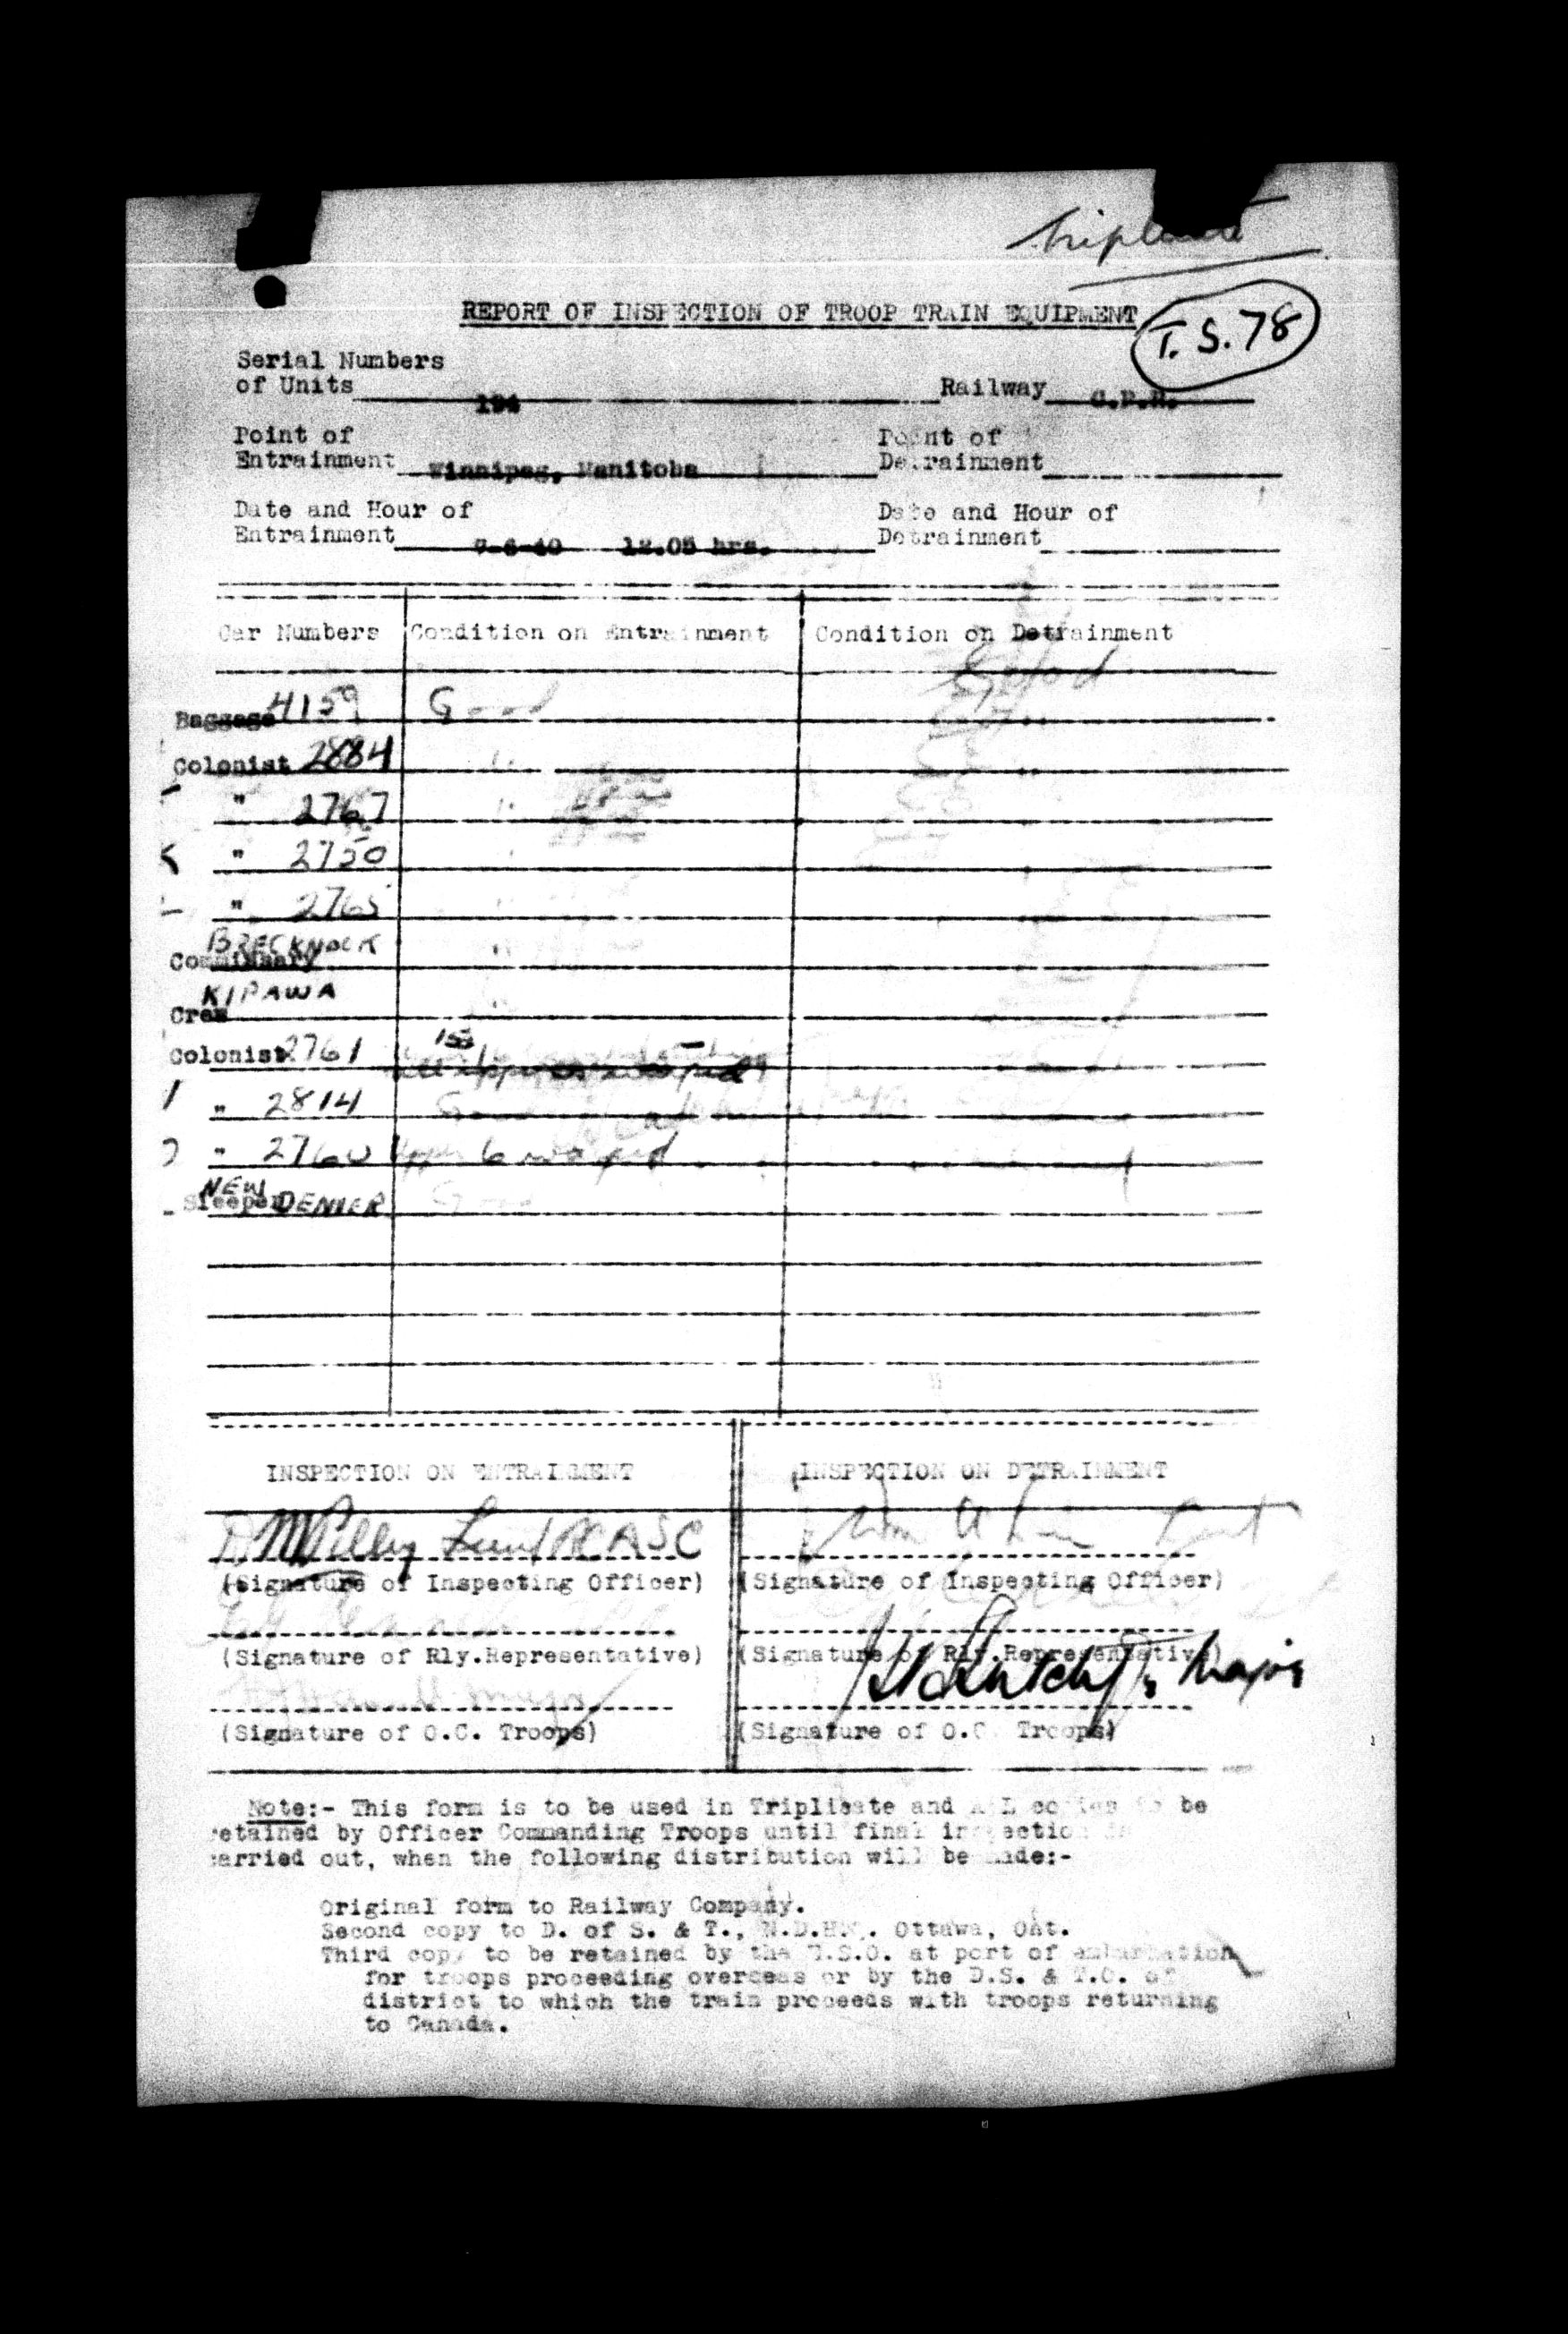 Triplicate
REPORT OF INSPECTION OF TROOP TRAIN EQUIPMENT
T. S. 78
Serial Numbers
of Units Railway C.P.R.
Point of Point of
Entrainment Winnipeg, Manitoba Detrainment
Date and Hour of Date and Hour of
Entrainment 12.05 hrs. Detrainment
Car Numbers Condition on Entrainment Condition on Detrainment
Good
Baggage 4159 Good
Colonist 2884 "
" 2767 "
" 2750 "
" 2765 "
BRECKNOCK
Commissary "
KIPAWA
Crew "
Colonist 2761
" 2814 Good
" 2760 Upper 6
NEW
Sleeper DENVER Good
INSPECTION ON ENTRAINMENT INSPECTION ON DETRAINMENT
RCASC
(Signature of Inspecting Officer) (Signature of Inspecting Officer)
(Signature of Rly.Representative) (Signature of Rly.Representative)
Major
(Signature of O.C. Troops) (Signature of O.C. Troops)
Note:- This form is to be used in Triplicate and ALL copies to be
retained by Officer Commanding Troops until final inspection is
carried out, when the following distribution will be made:-
Original form to Railway Company.
Second copy to D. of S. & T., N.D.HQ. Ottawa, Ont.
Third copy to be retained by the at port of embarkation
for troops proceeding overseas or by the D.S. & T.O. of
district to which the train proceeds with troops returning
to Canada.